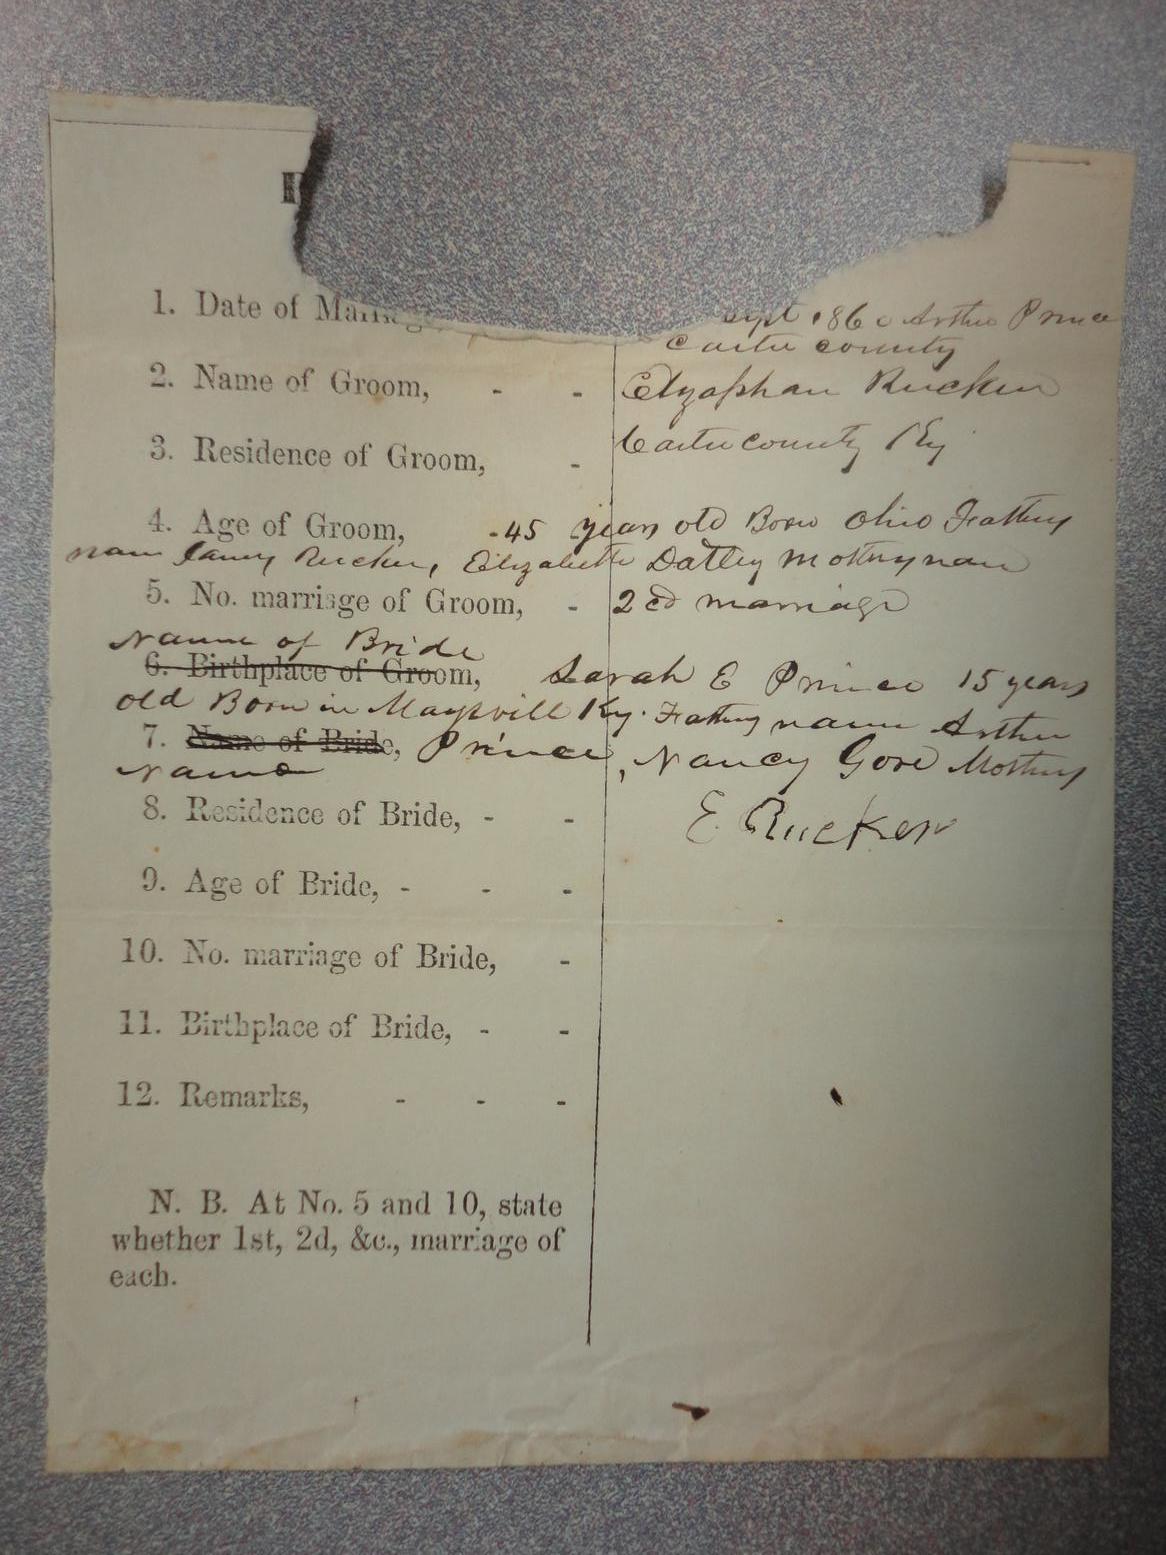 1. Date of Marriage, Sept 186 Arthur Prince
Carter county
2. Name of Groom, - - Elzaphan Rucker
3. Residence of Groom, - Carter county Ky
4. Age of Groom, - 45 years old Born Ohio Fathers
name Rucker, Elizabeth Datley Mothers name
5. No. marriage of Groom, - 2cd marriage
Name of Bride
6. Birthplace of Groom, Sarah E Prince 15 years
old Born in Maysvill Ky. Fathers name Arthur
7. Name of Bride, Prince, Nancy Gore Mothers
Name
8. Residence of Bride, - - E. Rucker
9. Age of Bride, - - -
10. No. marriage of Bride, -
11. Birthplace of Bride, - -
12. Remarks, - - -
N. B. At No. 5 and 10, state
whether 1st, 2d, &c., marriage of
each.